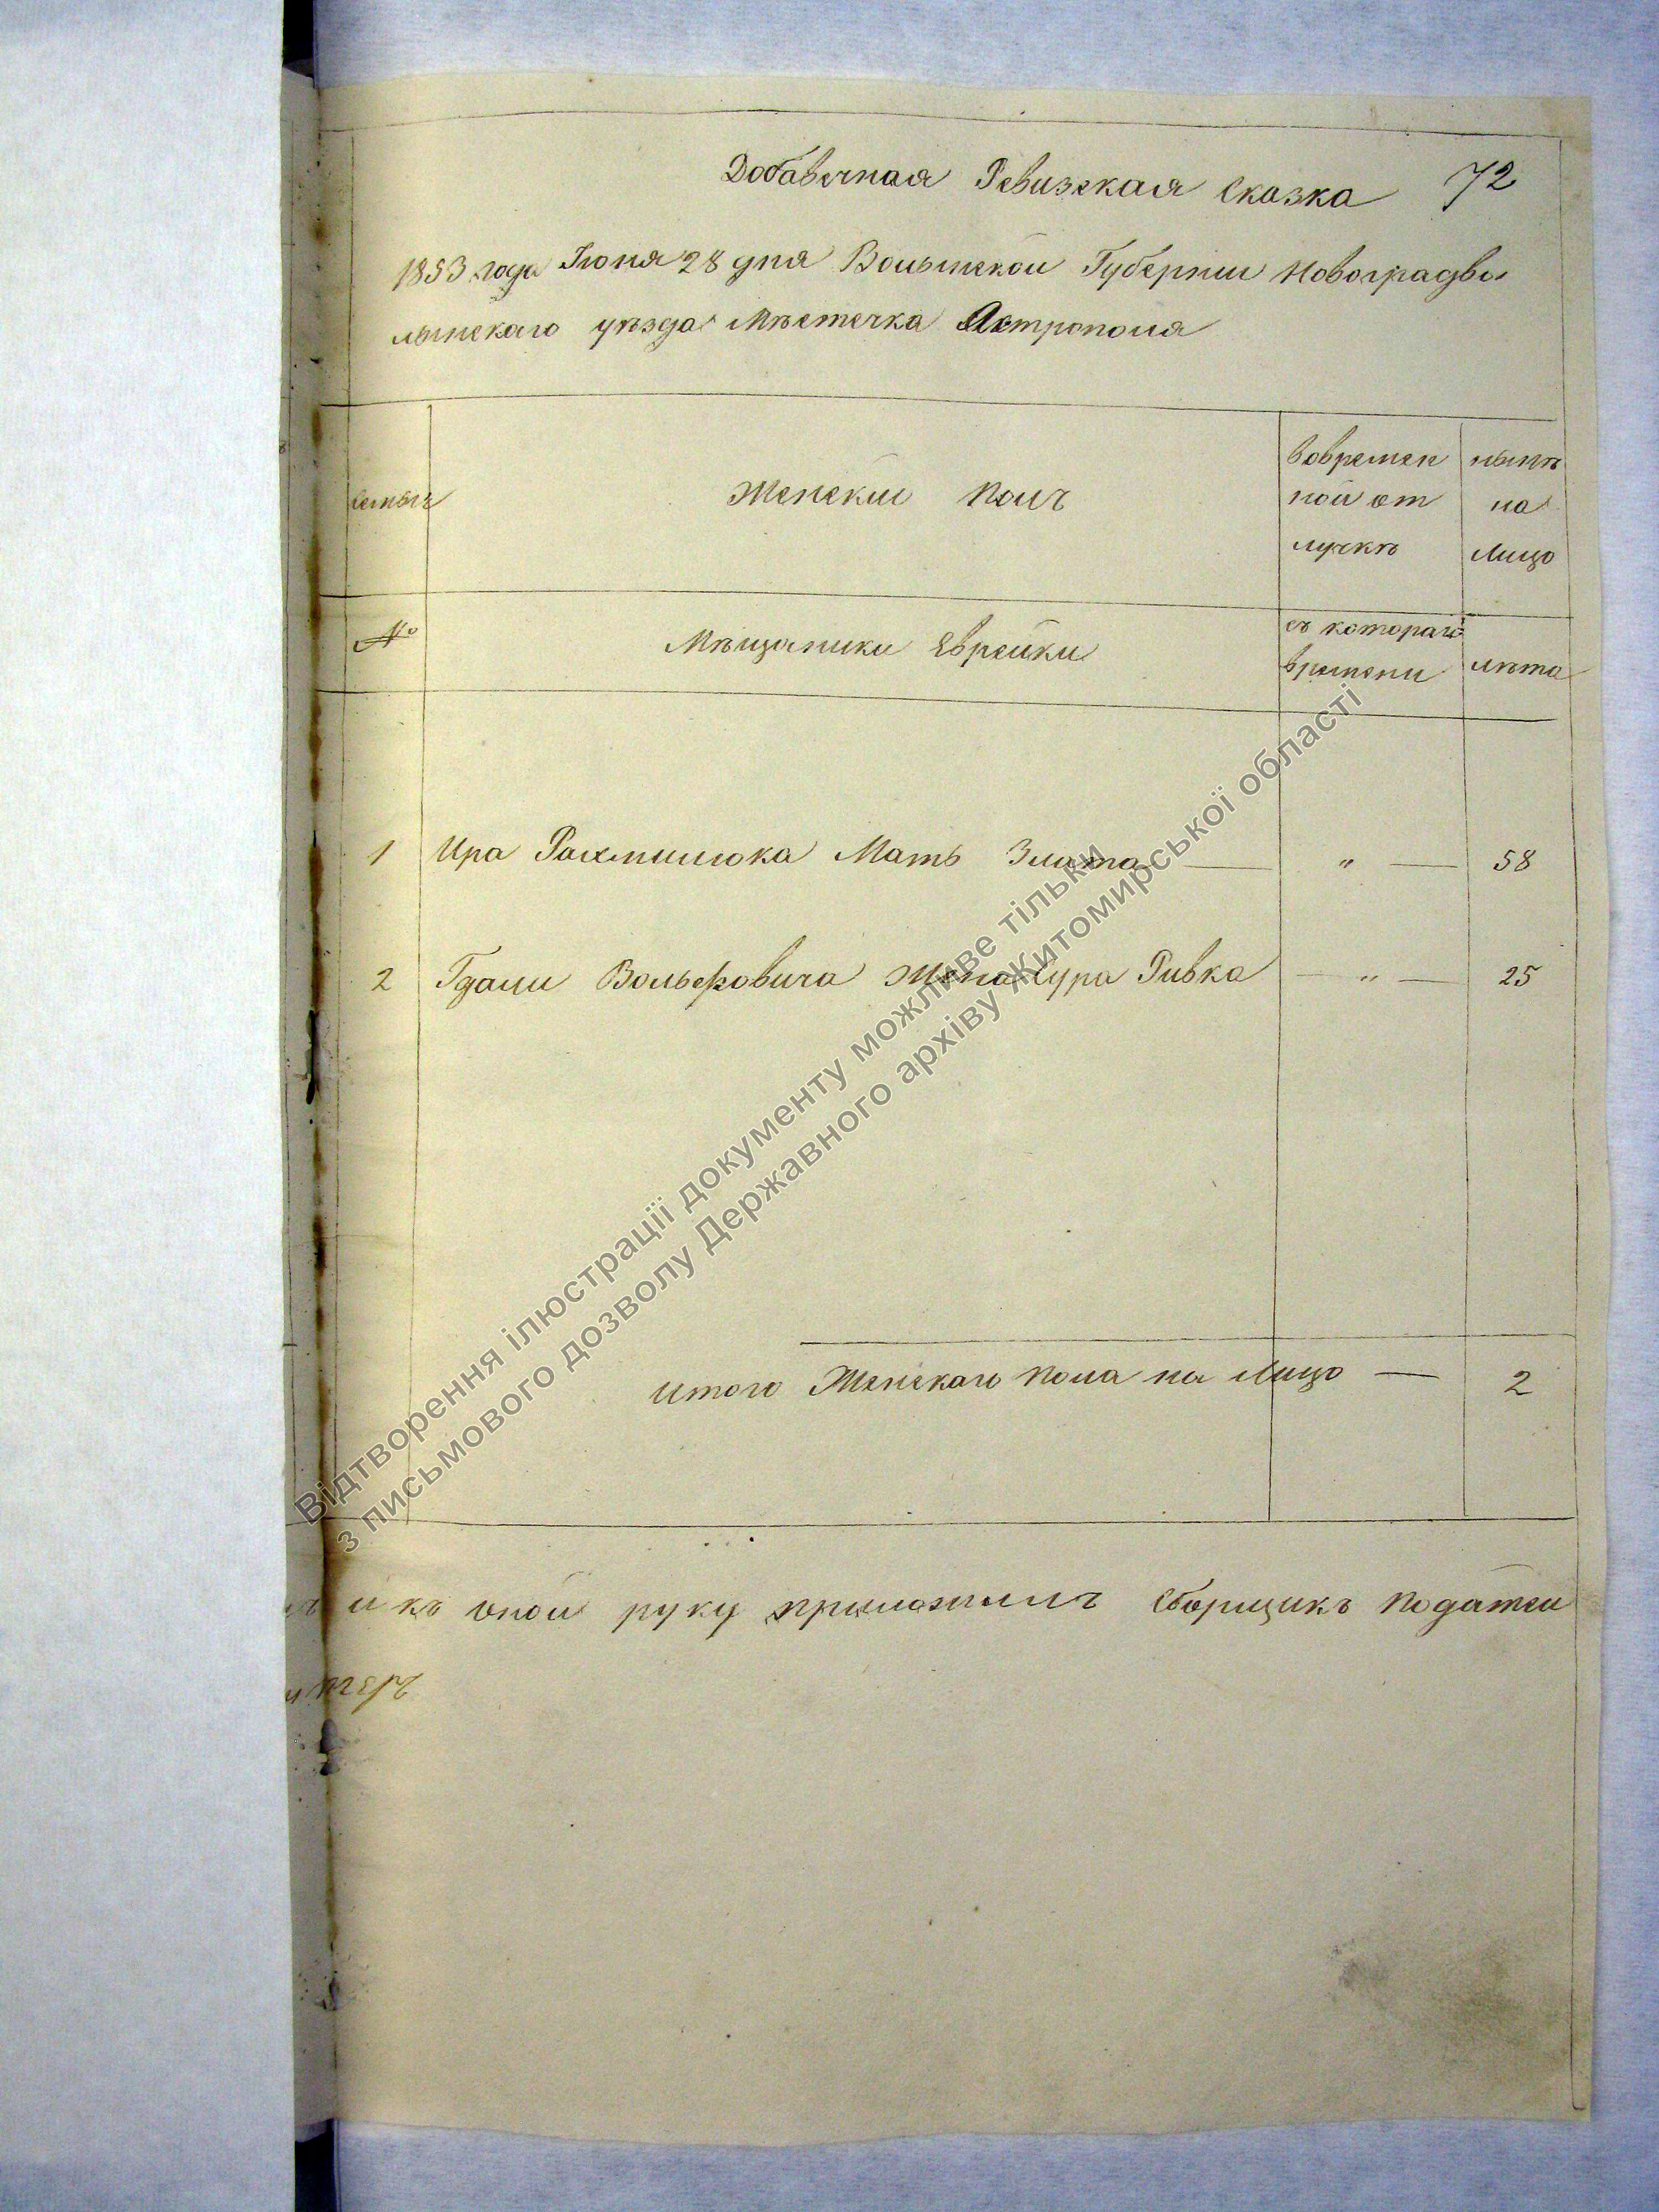 Добавочная Ревизская Сказка 72
1853 года Іюня 28 дня Волынской Губерніи Новоградво
лынскаго уѣзда Мѣстечка Острополя
семьи
Женскій полъ
вовремен
ной от
лучкѣ
нынѣ
на
Лицо
№
Мѣщаники Еврейки
съ котораго
времени
лѣта
1 Ира Рахмилюка Мать Злата — " — 58
2 Гдали Вольфовича Жена Сура Ривка — " — 25
итого Женскаго пола на Лицо — 2
и къ оной руку приложилъ Сборщикъ податей
Відтворення ілюстрації документу можливе тільки
з письмового дозволу Державного архіву Житомирської області